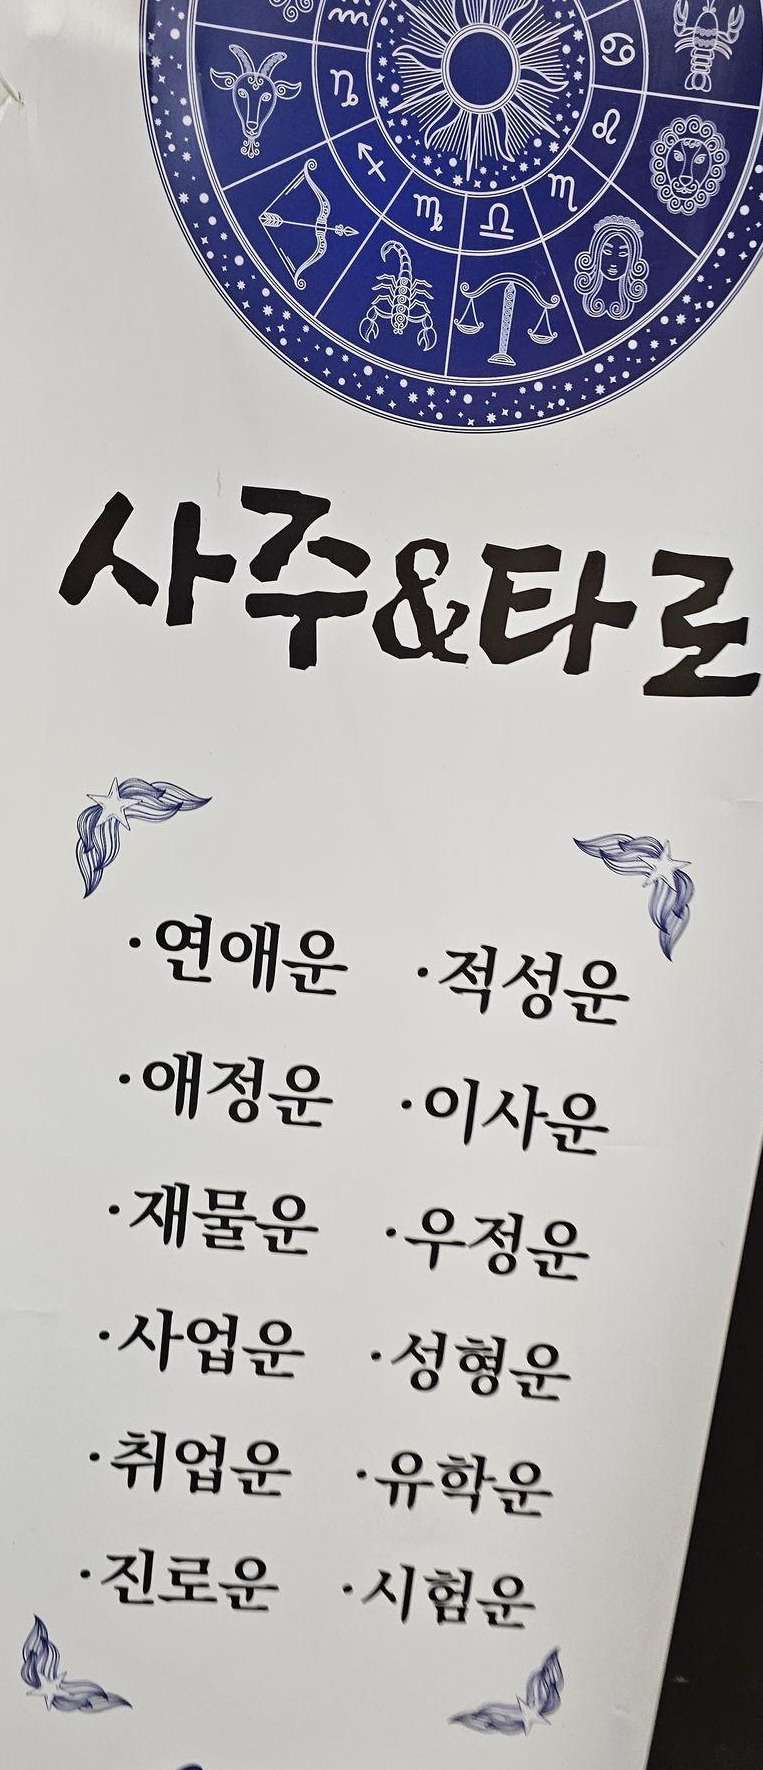 사주&타로
·연애운 ·적성운
·애정운 ·이사운
·재물운 ·우정운
·사업운 ·성형운
·취업운 ·유학운
·진로운 ·시험운